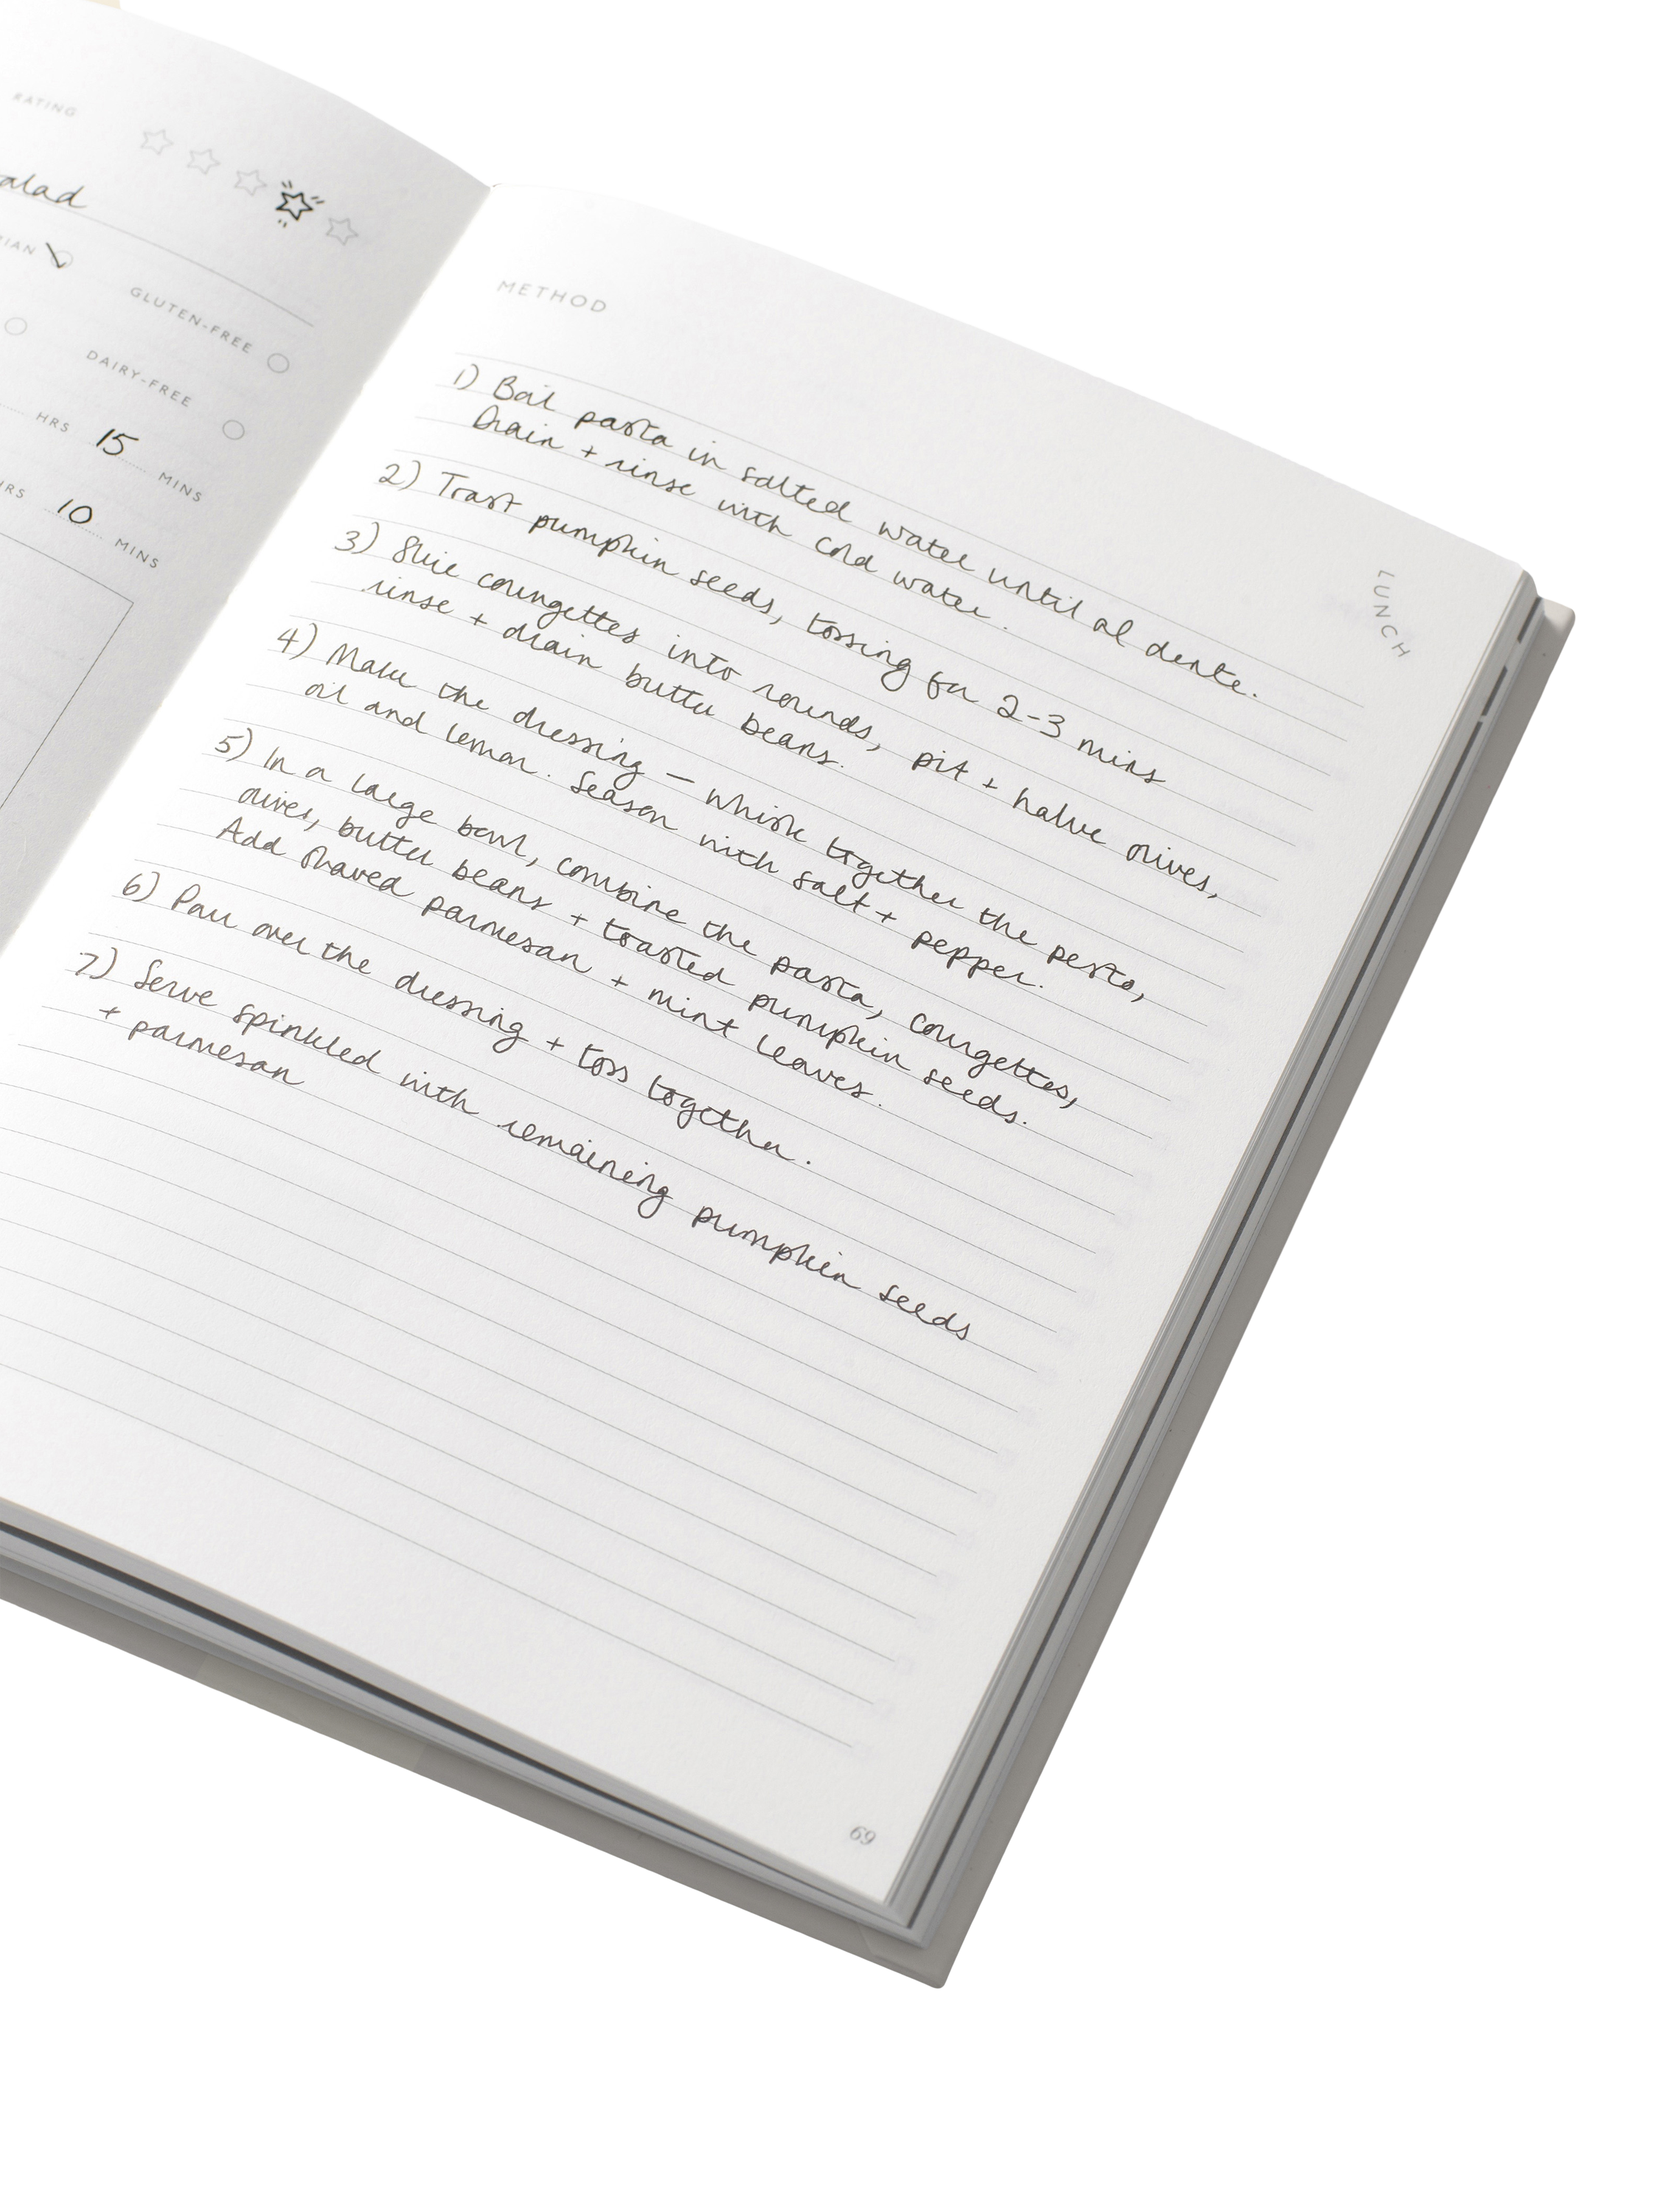 RATING
alad
IAN
GLUTEN-FREE
DAIRY-FREE
HRS 15 MINS
HRS 10 MINS
METHOD
1) Boil pasta in salted water until al dente.
Drain + rinse with cold water.
2) Toast pumpkin seeds, tossing for 2-3 mins
3) Slice courgettes into rounds, pit + halve olives,
rinse + drain butter beans.
4) Make the dressing - whisk together the pesto,
oil and lemon. Season with salt + pepper.
5) In a large bowl, combine the pasta, courgettes,
olives, butter beans + toasted pumpkin seeds.
Add shaved parmesan + mint leaves.
6) Pour over the dressing + toss together.
7) Serve spinkled with remaining pumpkin seeds
+ parmesan
LUNCH
69